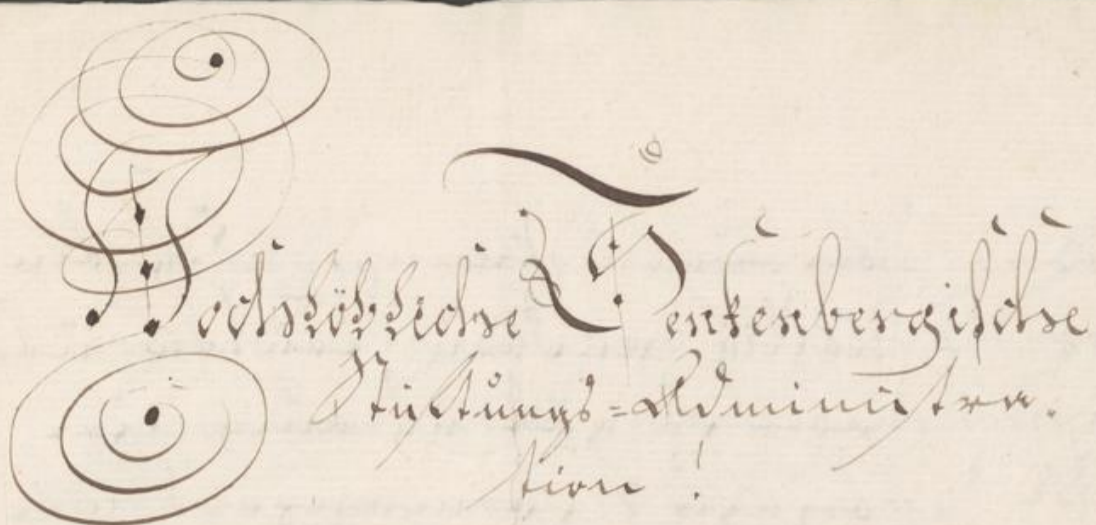 Hochlöbliche Senkenbergische
Stiftungs=Administra-
tion!